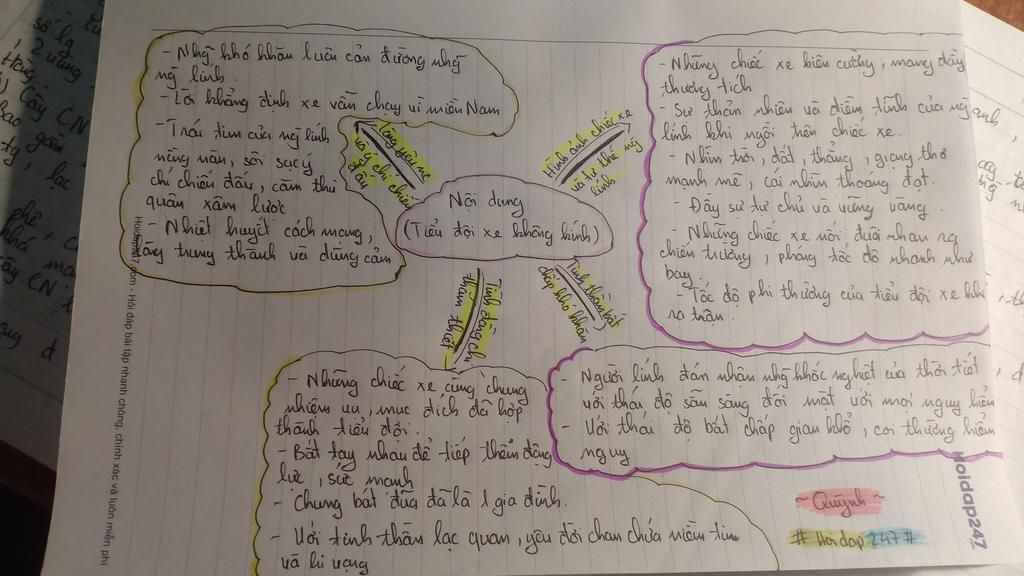 Nội dung
(Tiểu đội xe không kính)
Hình ảnh chiếc xe
và tư thế ng
lính
- Những chiếc xe kiên cường, mang đầy
thương tích
- Sự thản nhiên và điềm tĩnh của ng
lính khi ngồi trên chiếc xe.
- Nhìn trời, đất, thẳng, giọng thơ
mạnh mẽ, cái nhìn thoáng đạt.
- Đầy sự tự chủ và vững vàng.
- Những chiếc xe nối đuôi nhau ra
chiến trường, phóng tốc độ nhanh như
bay.
- Tốc độ phi thường của tiểu đội xe khi
ra trận.
Tinh thần bất
chấp khó khăn
- Người lính đón nhận nhg khắc nghiệt của thời tiết,
với thái độ sẵn sàng đối mặt với mọi nguy hiểm
- Với thái độ bất chấp gian khổ, coi thường hiểm
nguy
Tình đồng chí
thắm thiết
- Những chiếc xe cùng chung
nhiệm vụ, mục đích đã hợp
thành tiểu đội.
- Bắt tay nhau để tiếp thêm động
lực, sức mạnh
- Chung bát đũa đã là 1 gia đình.
- Với tinh thần lạc quan, yêu đời chan chứa niềm tin
và hi vọng
Lòng yêu nc
và ý chí chiến
đấu
- Nhg khó khăn luôn cản đường nhg
ng lính.
- Lời khẳng định xe vẫn chạy vì miền Nam
- Trái tim của ng lính
nồng nàn, sôi sục ý
chí chiến đấu, căm thù
quân xâm lược
- Nhiệt huyết cách mạng,
lòng trung thành và dũng cảm
~ Quỳnh ~
# Hoidap 247 #
Hoidap247
Hoidap247.com - Hỏi đáp bài tập nhanh chóng, chính xác và luôn miễn phí